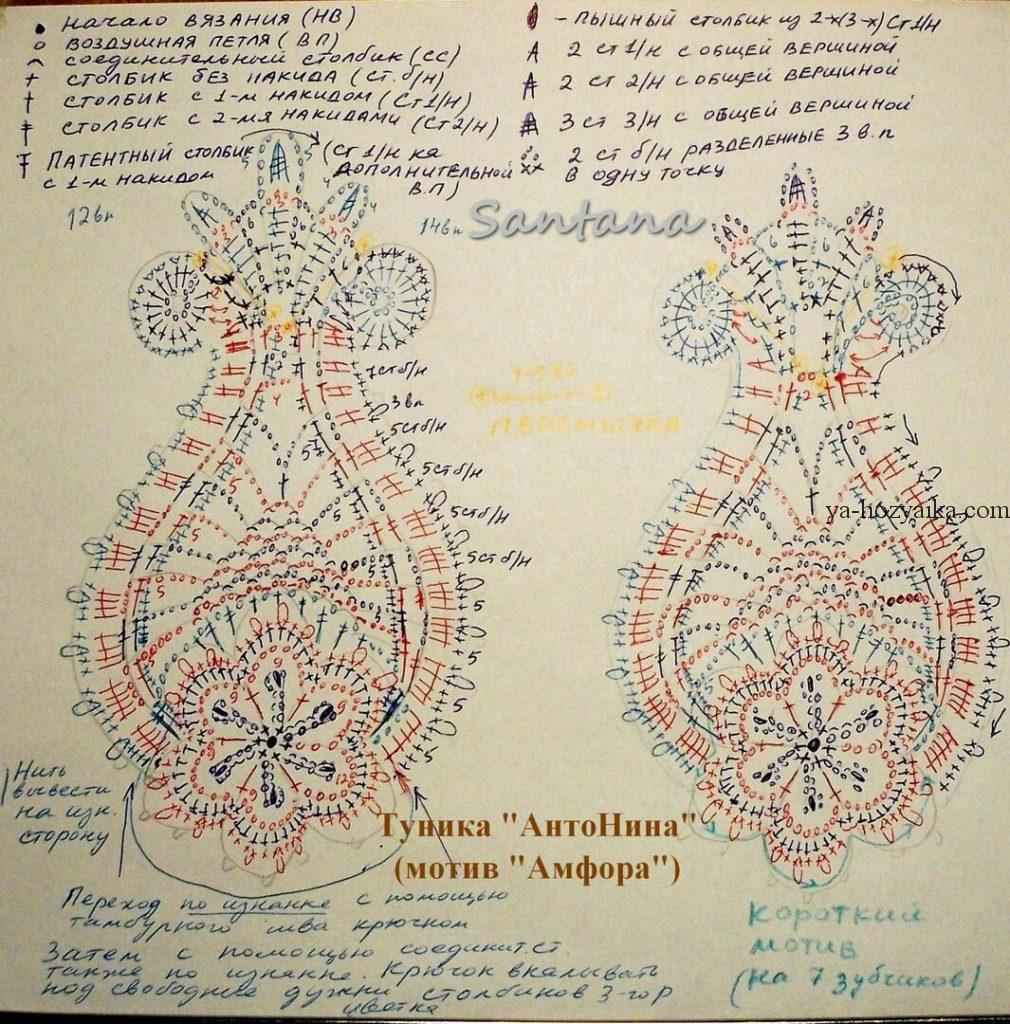 НАЧАЛО ВЯЗАНИЯ (НВ)
ВОЗДУШНАЯ ПЕТЛЯ (ВП)
СОЕДИНИТЕЛЬНЫЙ СТОЛБИК (СС)
СТОЛБИК БЕЗ НАКИДА (СТ. б/Н)
СТОЛБИК С 1-М НАКИДОМ (СТ 1/Н)
СТОЛБИК С 2-МЯ НАКИДАМИ (СТ 2/Н)
ПАТЕНТНЫЙ СТОЛБИК (СТ 1/Н на
с 1-м НАКИДОМ ДОПОЛНИТЕЛЬНОЙ
В.П)
- ПЫШНЫЙ СТОЛБИК из 2-х(3-х) Ст 1/Н
2 ст 1/н с общей ВЕРШИНОЙ
2 СТ 2/Н с общей ВЕРШИНОЙ
3 ст 3/Н с общей ВЕРШИНОЙ
2 ст б/н РАЗДЕЛЕННЫЕ 3 в.п
в одну точку
12вп
14вп
Santana
7стб/н
3вп
5стб/н
5стб/н
5стб/н
5стб/н
ПЕРЕМЫЧКА
ya-hozyaika.com
Нить
вывести
на изн.
сторону
Туника "АнтоНина"
(мотив "Амфора")
Переход по изнанке с помощью
тамбурного шва крючком
Затем с помощью соединит.ст.
также по изнанке. Крючок вкалывать
под свободные дужки столбиков 3-го р
цветка
короткий
мотив
(на 7 зубчиков)